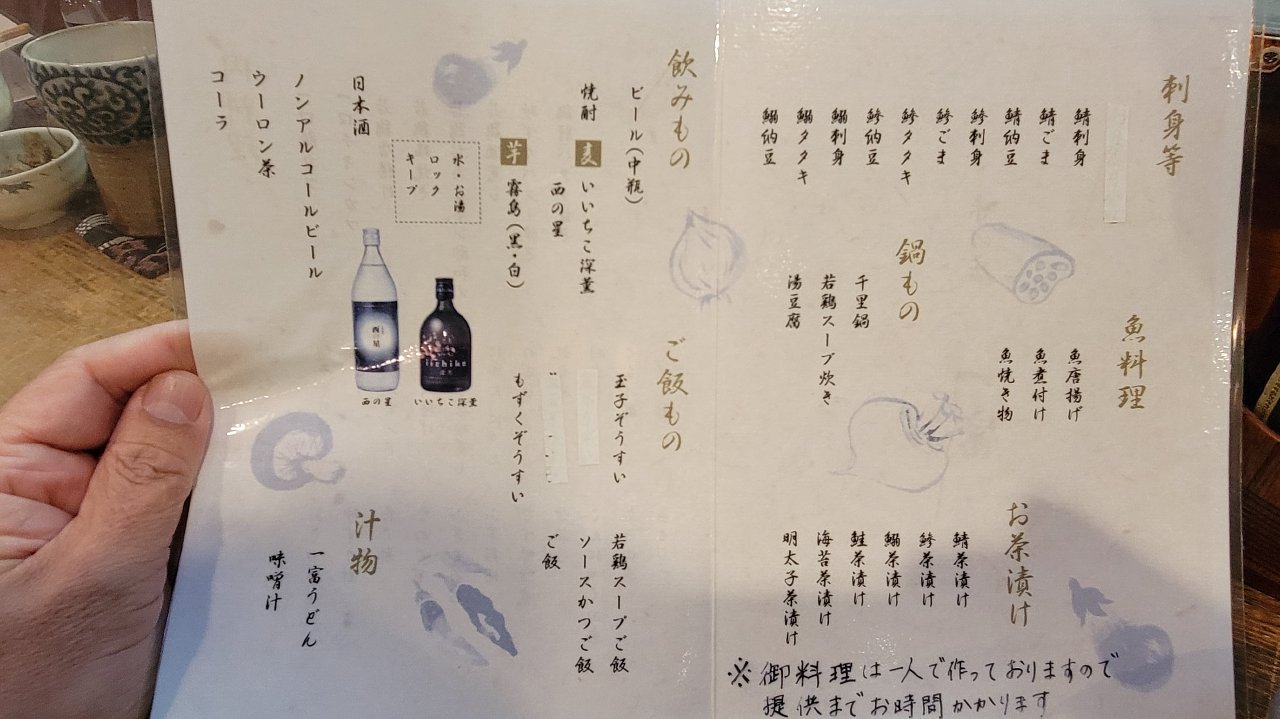 刺身等
鯖刺身
鯖ごま
鯖納豆
鯵刺身
鯵ごま
鯵タタキ
鯵納豆
鰯刺身
鰯タタキ
鰯納豆
魚料理
魚唐揚げ
魚煮付け
魚焼き物
鍋もの
千里鍋
若鶏スープ炊き
湯豆腐
お茶漬け
鯖茶漬け
鯵茶漬け
鰯茶漬け
鮭茶漬け
海苔茶漬け
明太子茶漬け
※御料理は一人で作っておりますので
提供までお時間かかります
飲みもの
ビール(中瓶)
焼酎
麦 いいちこ深薫
西の星
芋 霧島(黒・白)
水・お湯
ロック
キープ
日本酒
ノンアルコールビール
ウーロン茶
コーラ
西の星
iichiko
西の星
いいちこ深薫
ご飯もの
玉子ぞうすい
もずくぞうすい
若鶏スープご飯
ソースかつご飯
ご飯
汁物
一富うどん
味噌汁